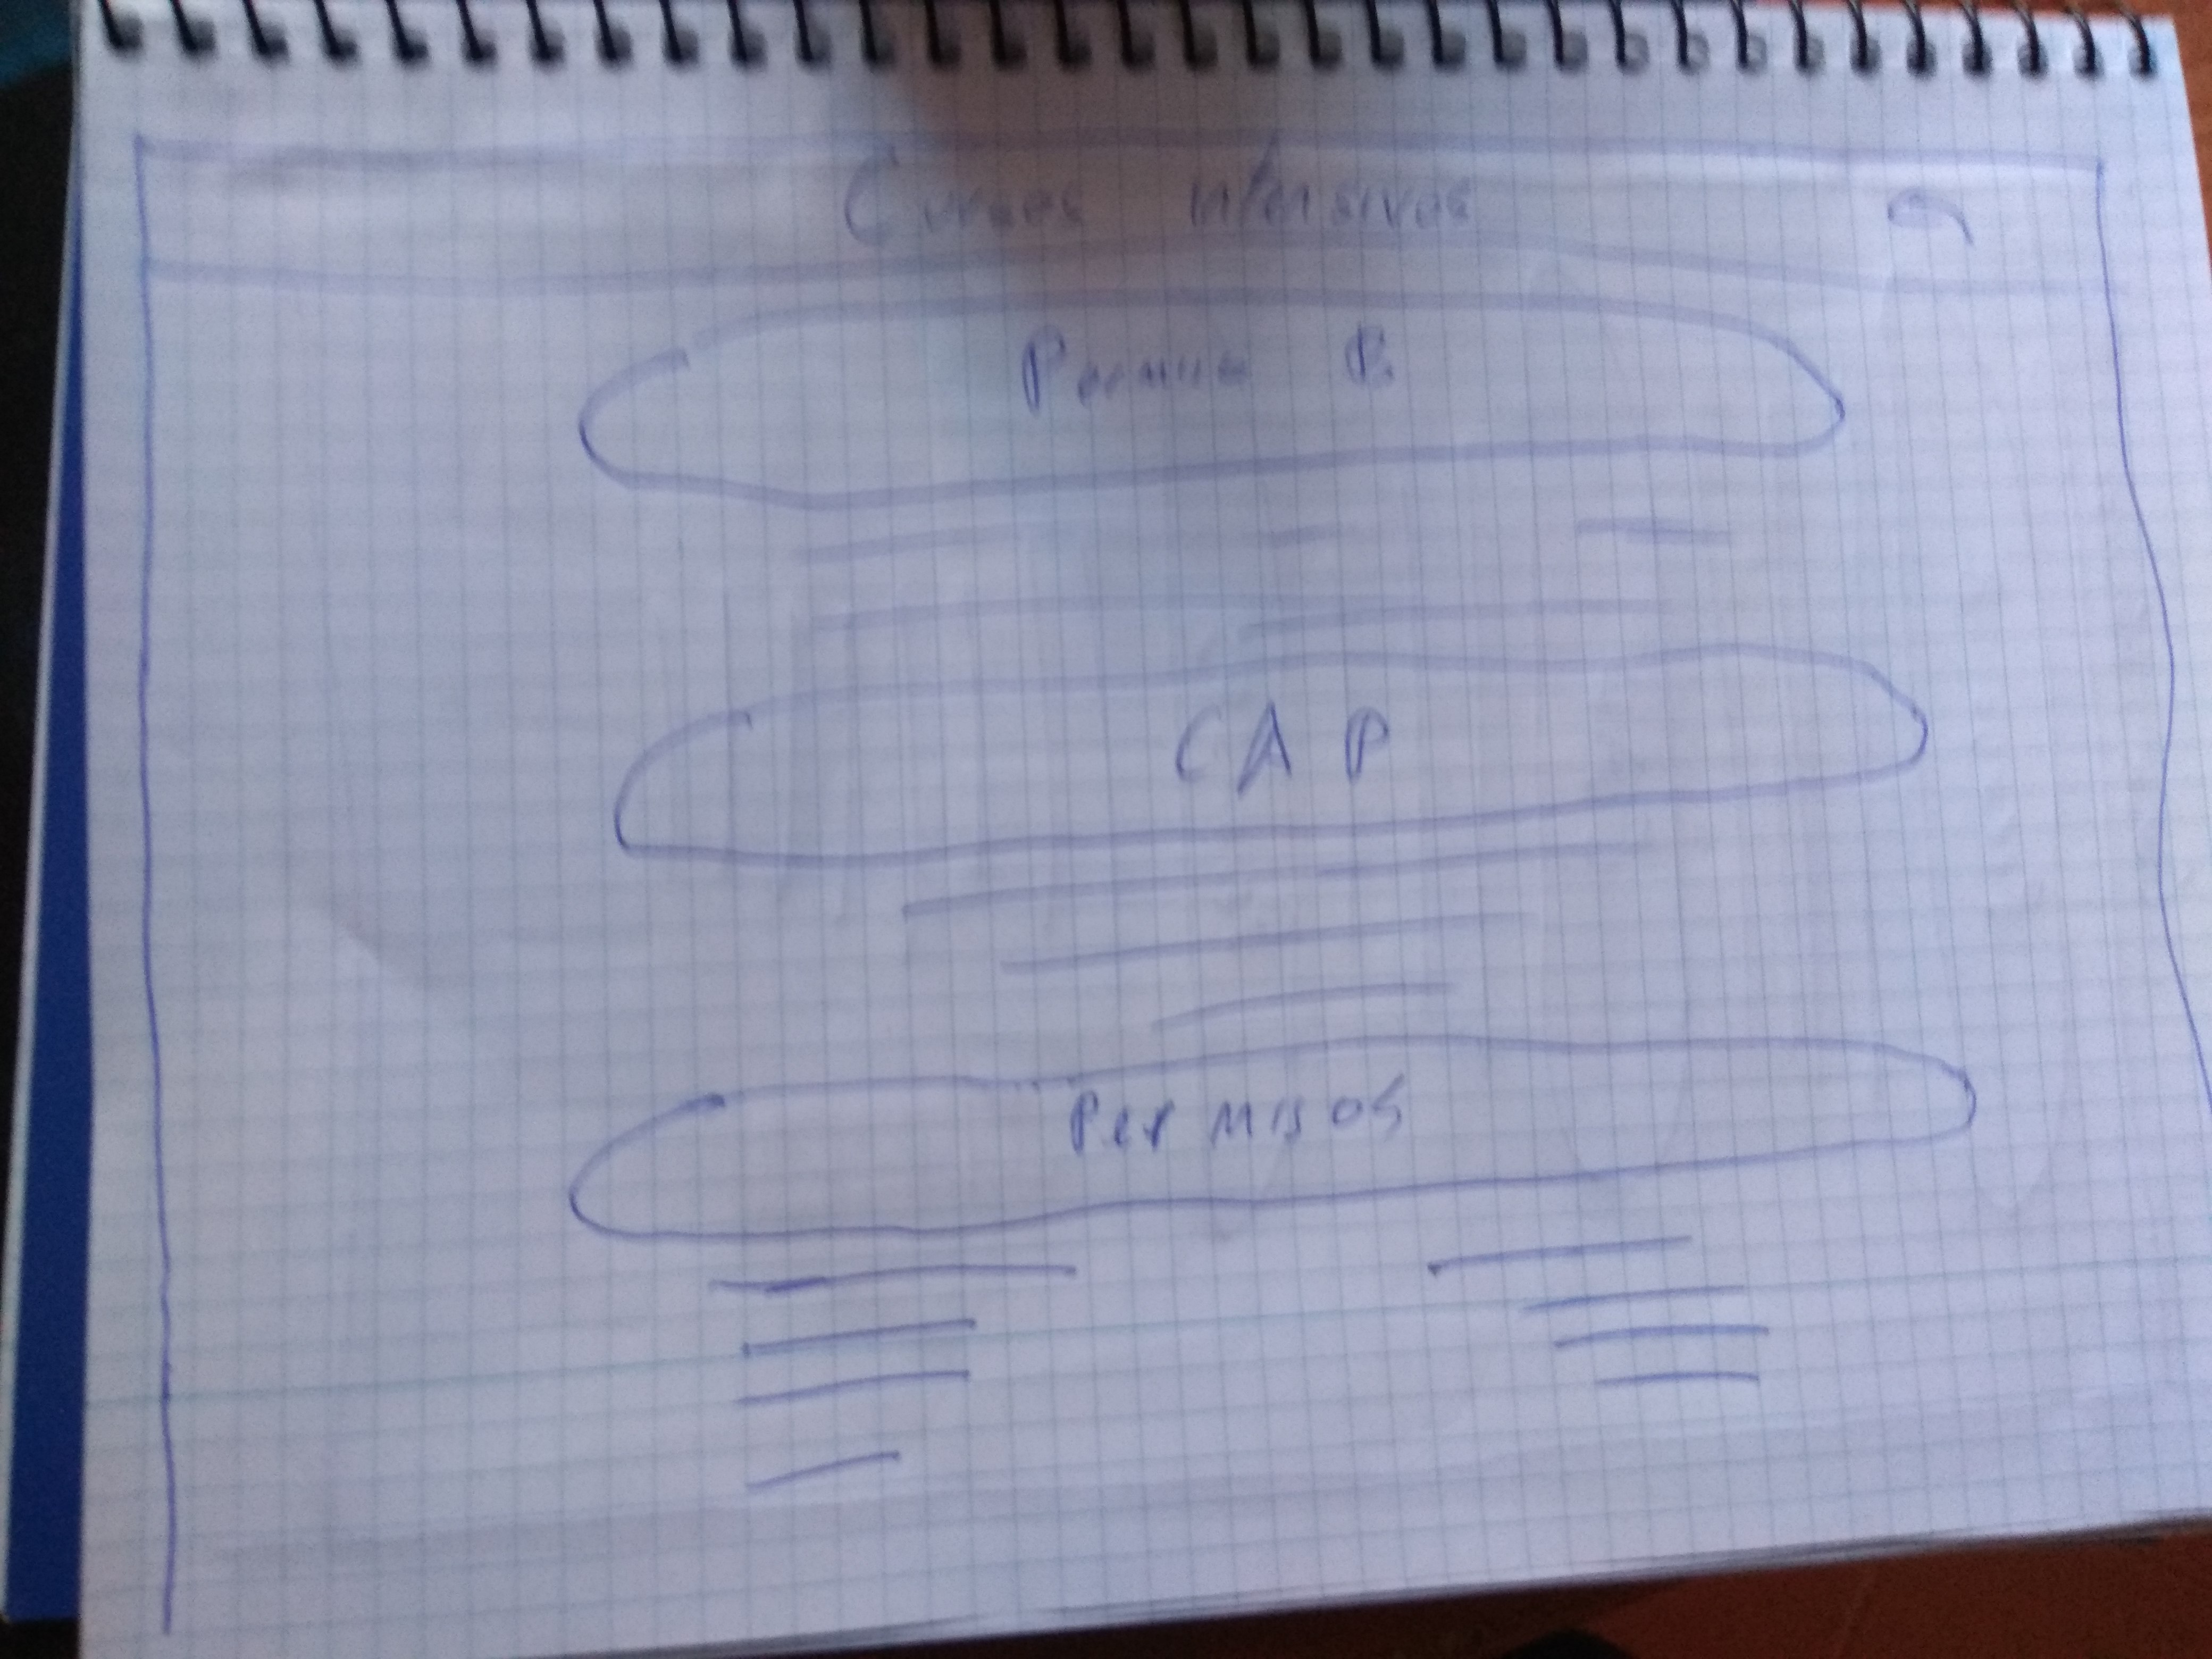 Cursos intensivos
Permiso B
CAP
Permisos